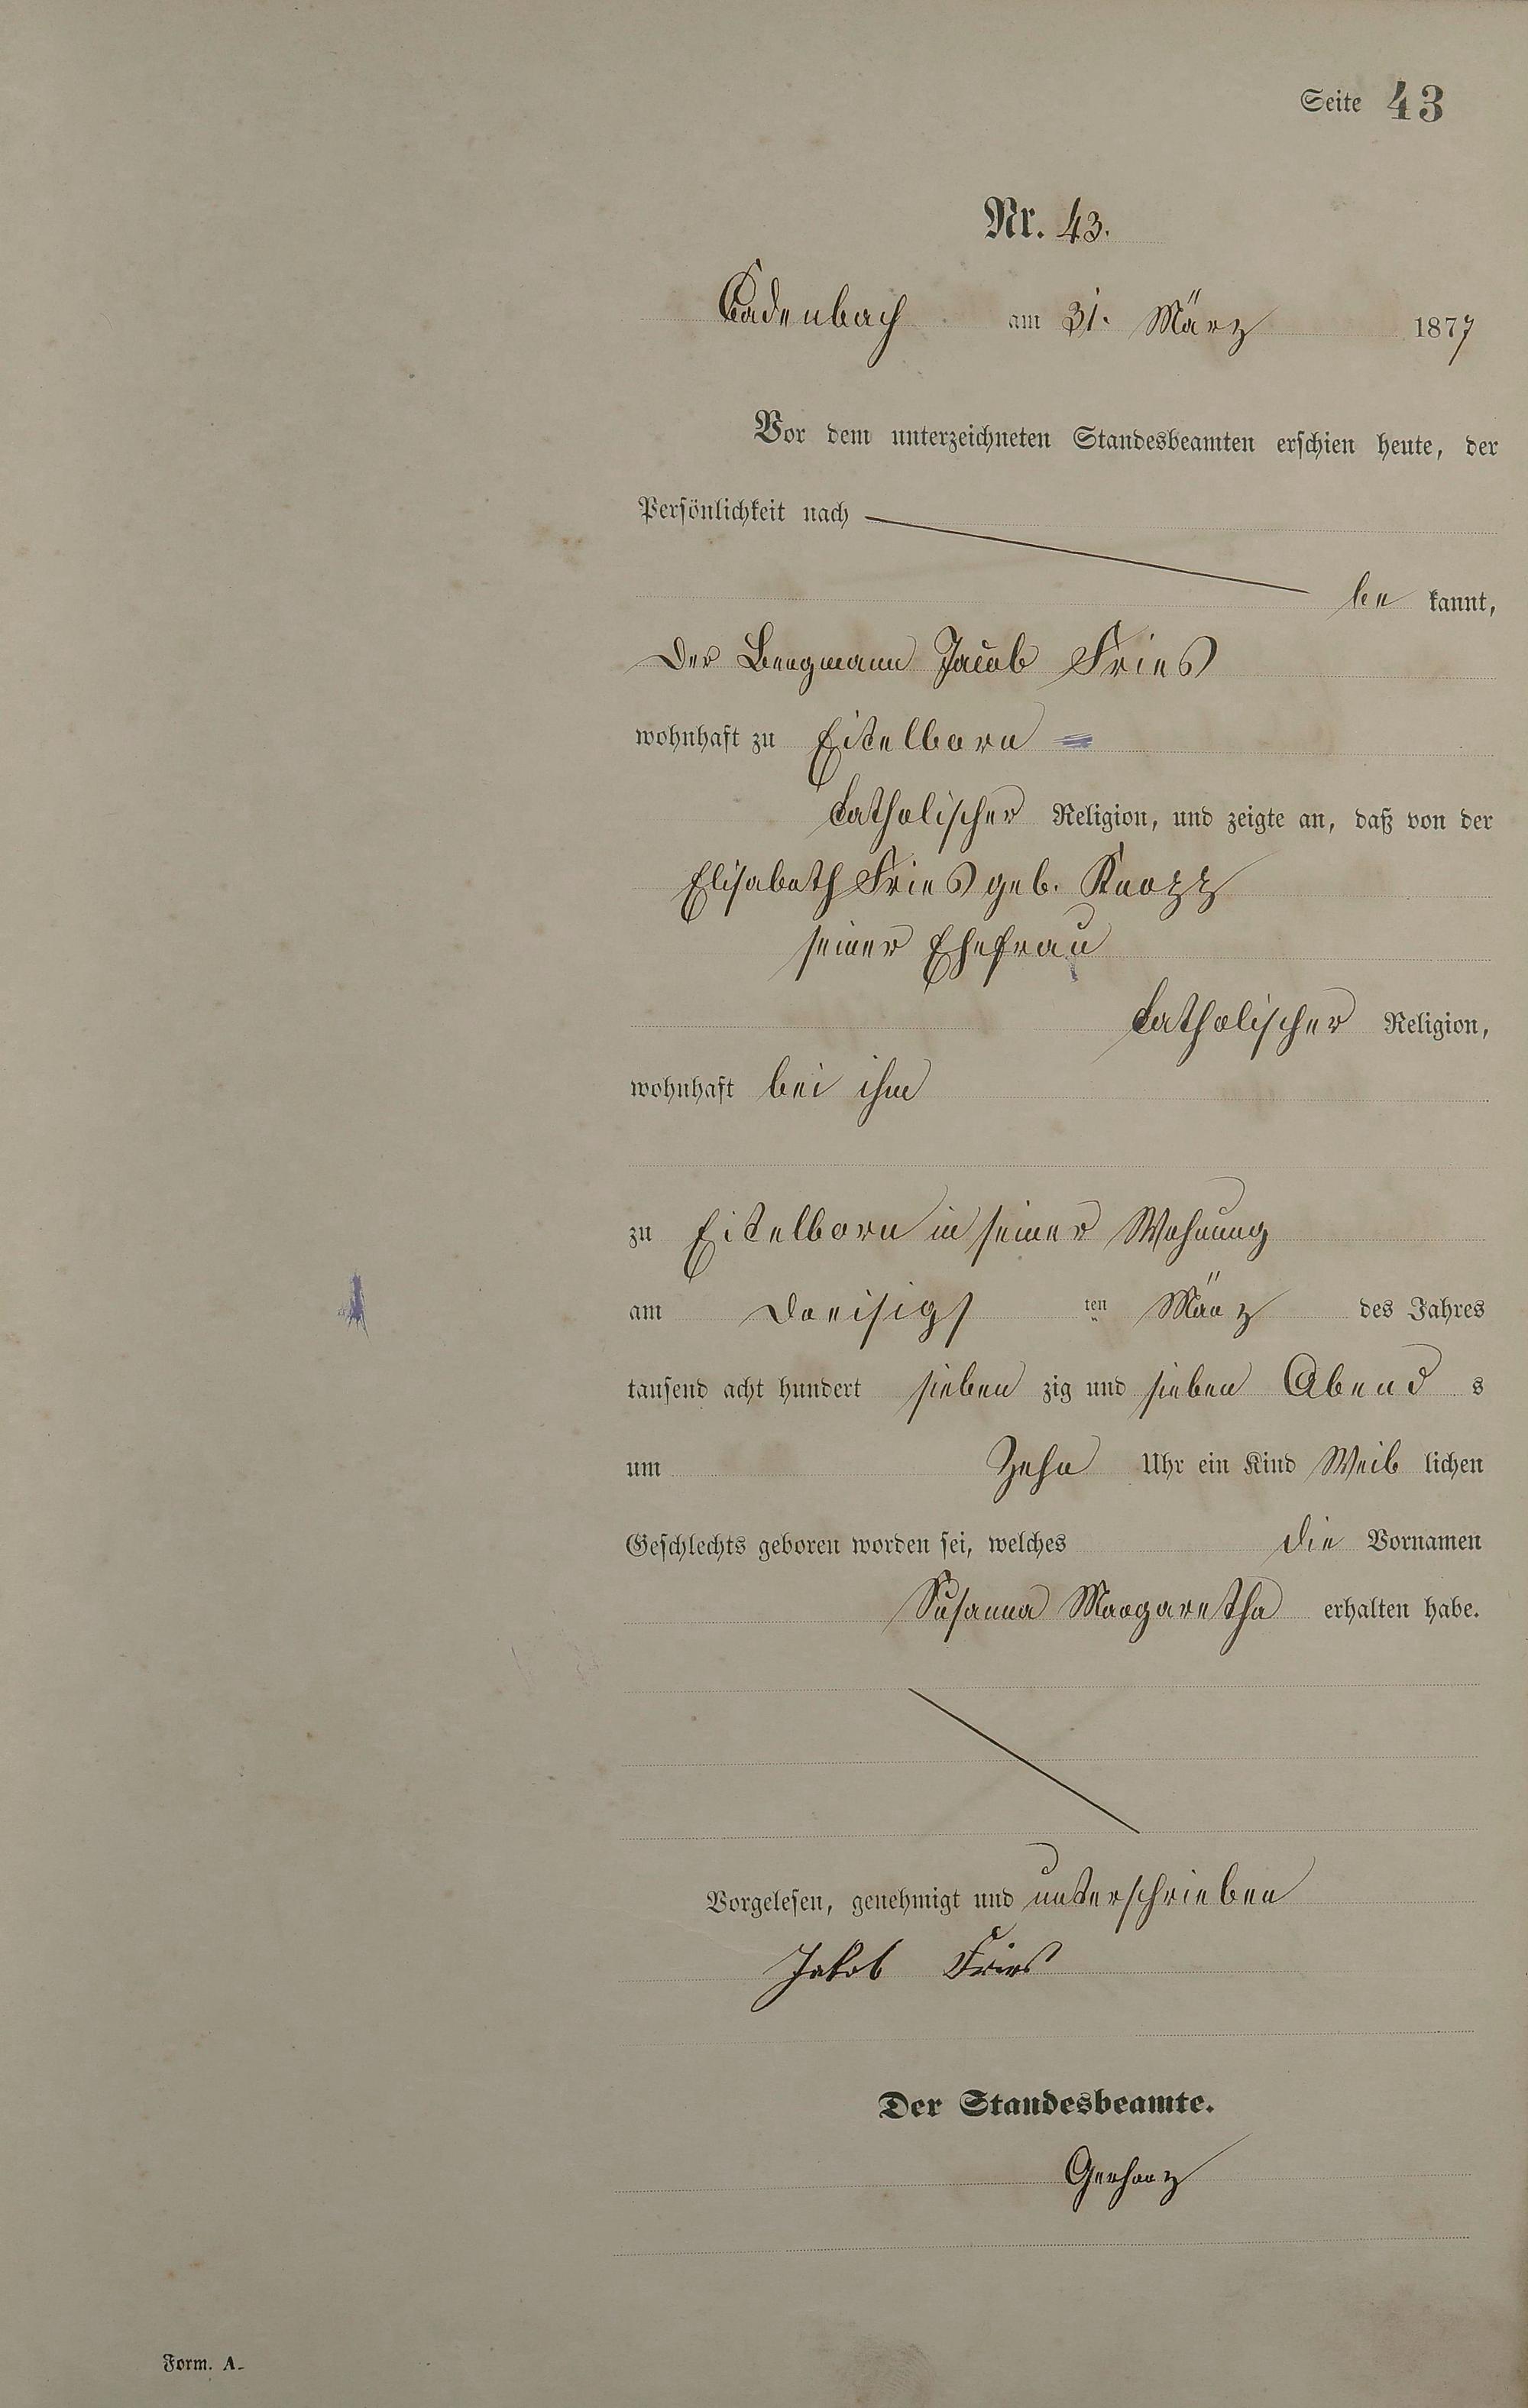 Seite 43
Nr. 43.
Cadenbach am 31. März 1877
Vor dem unterzeichneten Standesbeamten erschien heute, der
Persönlichkeit nach
be kannt,
der Bergmann Jacob Fries
wohnhaft zu Eitelborn
katholischer Religion, und zeigte an, daß von der
Elisabeth Fries geb. Knopp
seiner Ehefrau
katholischer Religion,
wohnhaft bei ihm
zu Eitelborn in seiner Wohnung
am dreisigs ten März des Jahres
tausend acht hundert sieben zig und sieben Abend s
um Zehn Uhr ein Kind Weib lichen
Geschlechts geboren worden sei, welches die Vornamen
Susanna Margaretha erhalten habe.
Vorgelesen, genehmigt und unterschrieben
Jakob Fries
Der Standesbeamte.
Gerharz
Form. A.